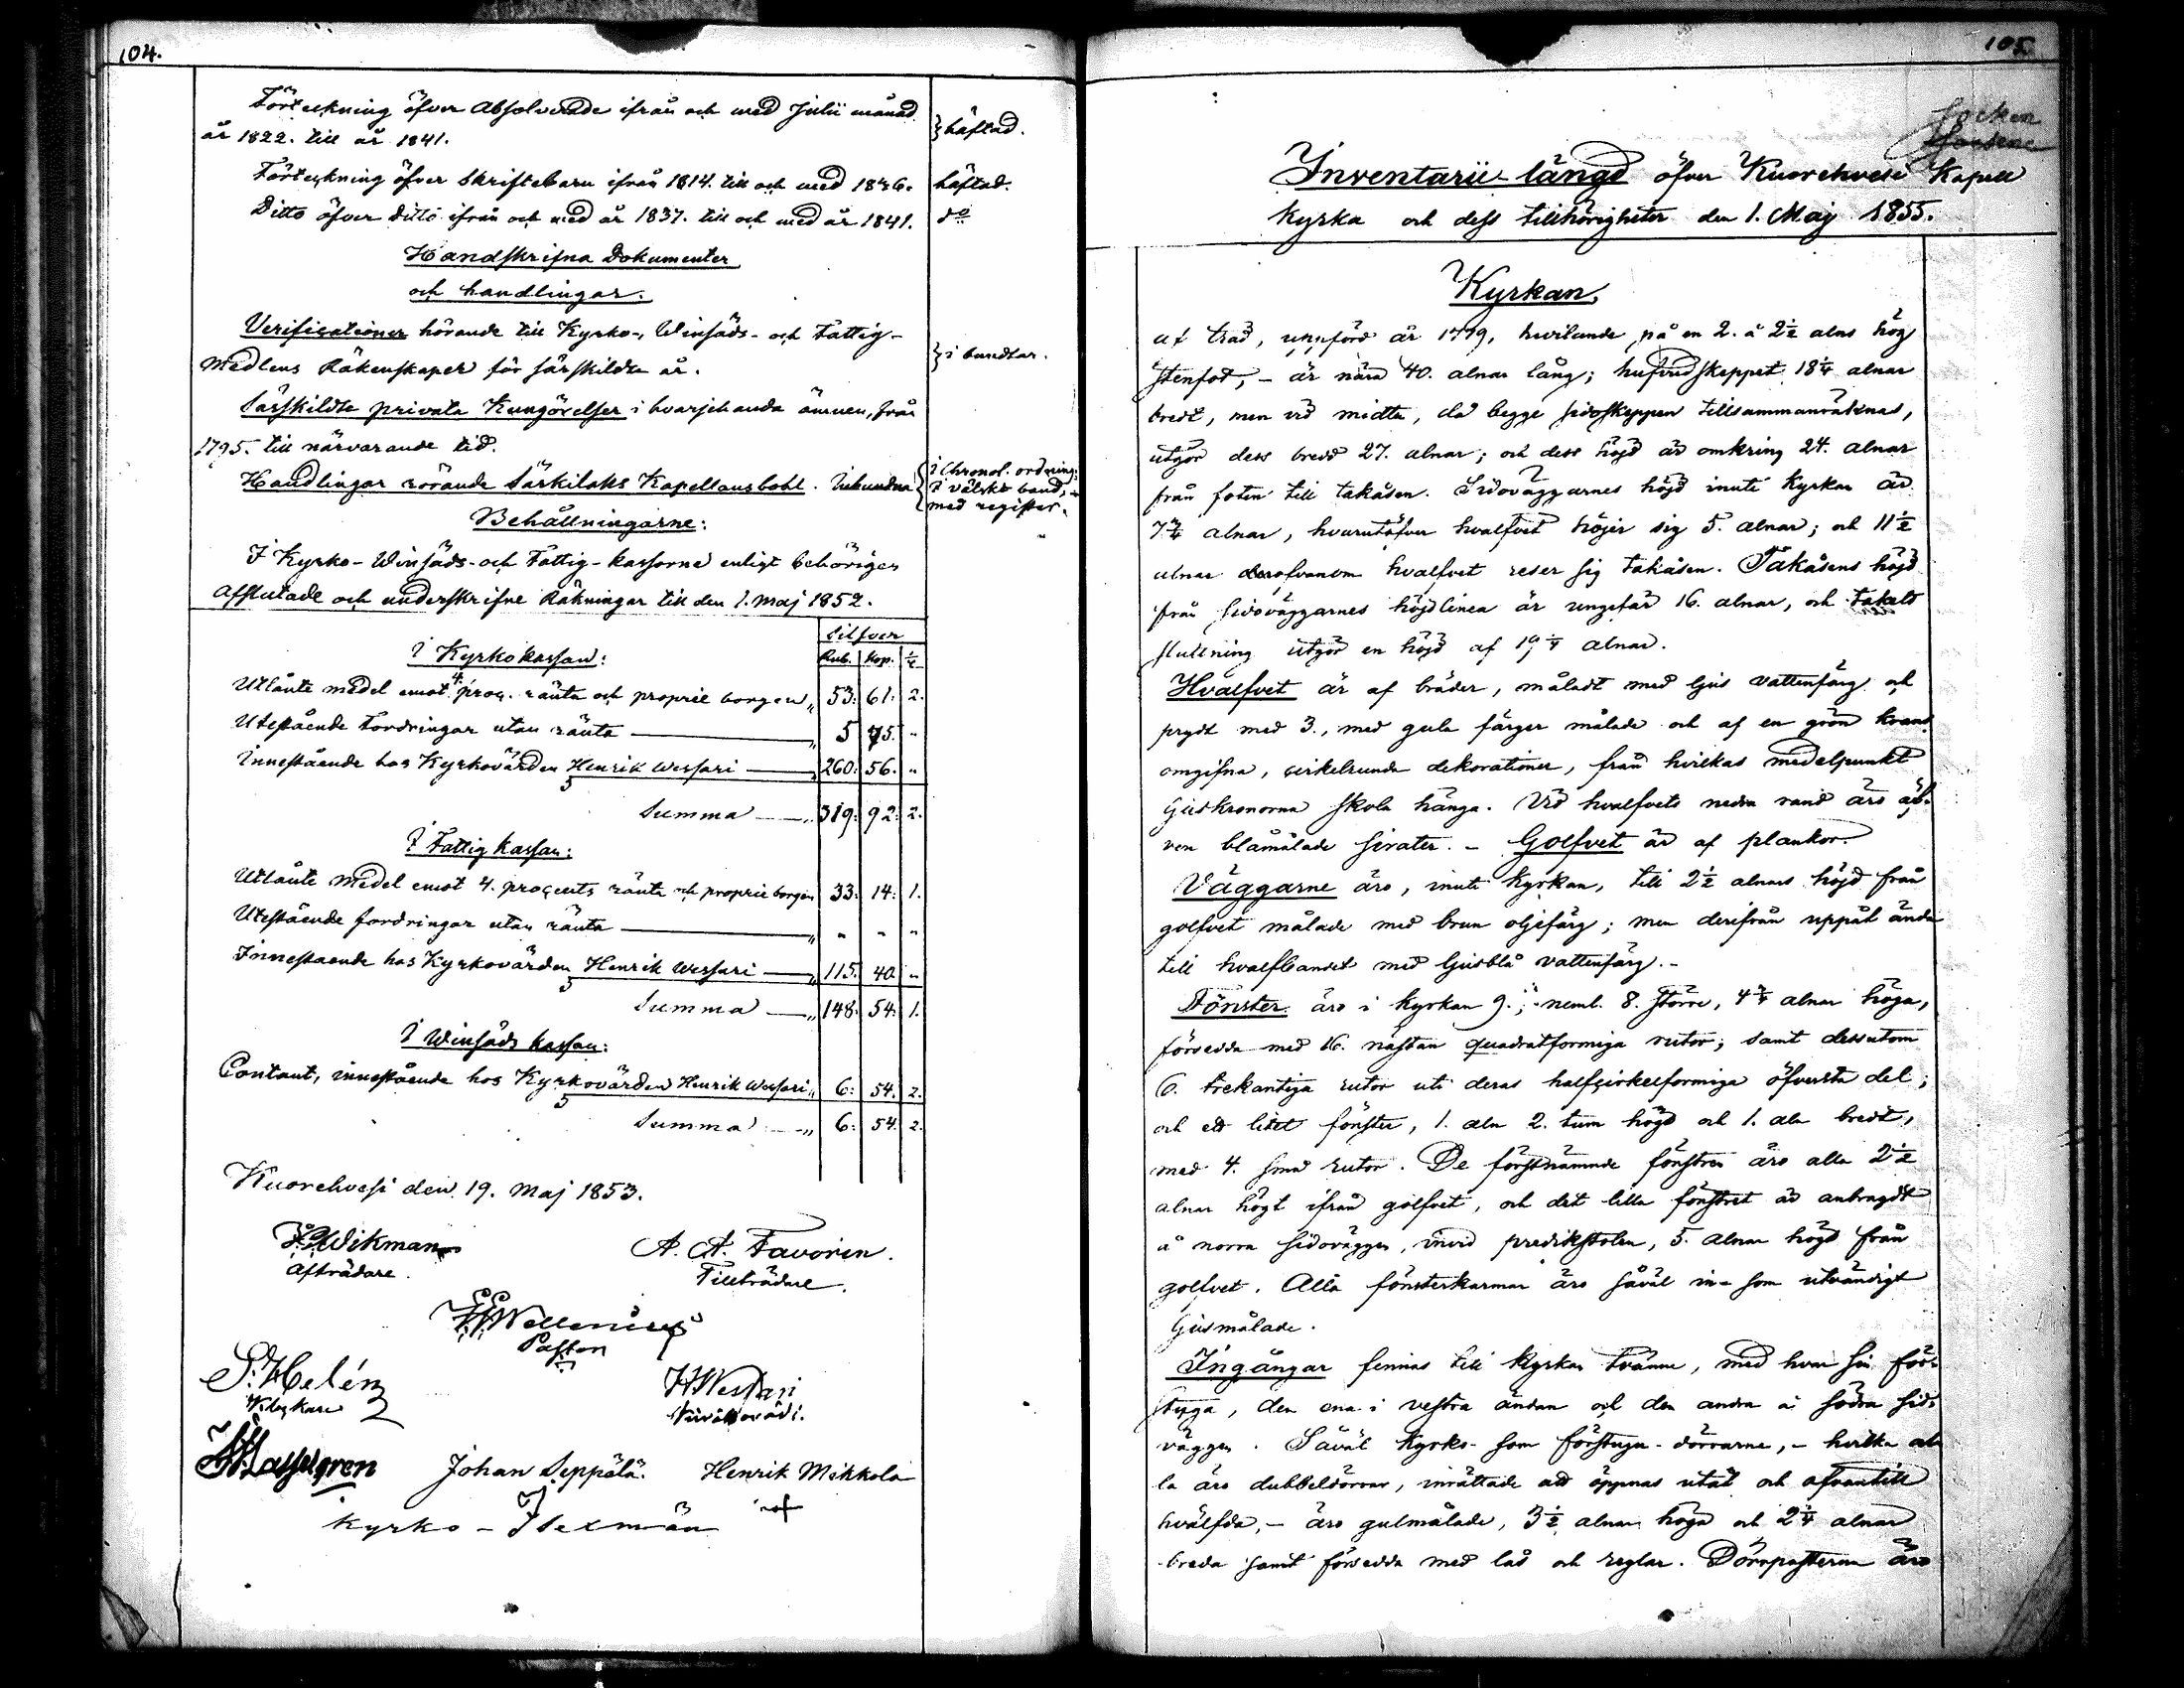 104.
Förteckning öfver Absolverade ifrån och med Julii månad
år 1822. till år 1841.
} häftad.
Förteckning öfver Skriftebarn ifrån 1814. till och med 1836.
häftad.
Ditto öfver Ditto ifrån och med år 1837. till och med år 1841.
do
Handskrifna Dokumenter
och handlingar.
Verificationer hörande till Kyrko-, Winsäds- och Fattig-
Medlens Räkenskaper för särskildta år.
} i bundtar.
Särskildte private Kungörelser i hvarjehanda ämnen, från
1795. till närvarande tid.
Handlingar rörande Särkilaks Kapellansbohl. Inbundna
{ i Chronol. ordning;
i välskt band,
med register.
Behållningarne:
I Kyrko- Winsäds- och Fattig-kassorne enligt behörigen
Afslutade och underskrifne Räkningar till den 1. Maj 1852.
Silfver
I Kyrkokassan:
Rub. Kop. ¼
Utlånte medel emot 4. proc. ränta och proprie borgen „ 53: 61: 2.
Utestående Fordringar utan ränta — „ 5 75. „
Innestående hos Kyrkovärden Henrik Wessari — „ 260: 56. „
Summa — „ 319: 92: 2.
I Fattigkassan:
Utlånte Medel emot 4. procents ränta och proprie borgen 33: 14: 1.
Utestående fordringar utan ränta — „ „ „ „
Innestående hos Kyrkovärden Henrik Wessari — „ 115. 40. „
Summa — „ 148: 54: 1.
I Winsäds kassan:
Contant, innestående hos Kyrkovärden Henrik Wessari „ 6: 54: 2.
Summa — „ 6: 54: 2.
Kuorehvesi den 19. Maj 1853.
Wikman
Afträdare.
A. A. Favorin.
Tillträdare.
Wellenius
Pastor
P. Helén
Klockare
H Wessari
Hasselgren
Johan Seppälä.
Henrik Mikkola
Kyrko-Sexmän
105.
Socken
Inventarii-längd öfver Kuorehvesi Kapell
kyrka och dess tillhörigheter den 1. Maj 1855.
Kyrkan,
af träd, uppförd år 1779, hvilande på en 2. à 2½ alns hög
stenfot, - är nära 40. alnar lång; hufvudskeppet 18¼ alnar
bredt, men vid midten, då begge sidoskeppen tillsammanräknas,
utgör dess bredd 27. alnar; och dess höjd är omkring 24. alnar
från foten till takåsen. Sidoväggarnes höjd inuti kyrkan är
7¾ alnar, hvarutöfver hvalfvet höjer sig 5. alnar; och 11½
alnar derofvanom hvalfvet reser sig takåsen. Takåsens höjd
från sidoväggarnes höjdlinea är ungefär 16. alnar, och takets
sluttning utgör en höjd af 19¼ alnar.
Hvalfvet är af bräder, måladt med ljus vattenfärg och
prydt med 3., med gula färger målade och af en grön krans
omgifna, cirkelrunda dekorationer, från hvilkas medelpunkt
ljuskronorna skola hänga. Vid hvalfvets nedra rand äro äf-
ven blåmålade sirater. - Golfvet är af plankor.
Väggarne äro, inuti kyrkan, till 2½ alnars höjd från
golfvet målade med brun oljefärg; men derifrån uppåt ända
till hvalfbandet med ljusblå vattenfärg. -
Fönster äro i kyrkan 9.; neml. 8. större, 4¾ alnar höga,
försedda med 16. nästan quadratformiga rutor; samt dessutom
6. trekantiga rutor uti deras halfcirkelformiga öfversta del;
och ett litet fönster, 1. aln 2. tum högt och 1. aln bredt,
med 4. små rutor. De förstnämnde fönstren äro alla 2½
alnar högt ifrån golfvet, och det lilla fönstret är anbragdt
å norra sidoväggen, invid predikstolen, 5. alnar högt från
golfvet. Alla fönsterkarmar äro såväl in- som utvändigt
ljusmålade.
Ingångar finnas till Kyrkan tvänne, med hvar sin för-
stuga, den ena i vestra ändan och den andra å södra sido-
väggen. Såväl kyrko- som förstuge-dörrarne, - hvilka al-
la äro dubbeldörrar, inrättade att öppnas utåt och ofvantill
hvälfda, - äro gulmålade, 3½ alnar höga och 2¼ alnar
breda samt försedda med lås och reglar. Dörrposterna äro